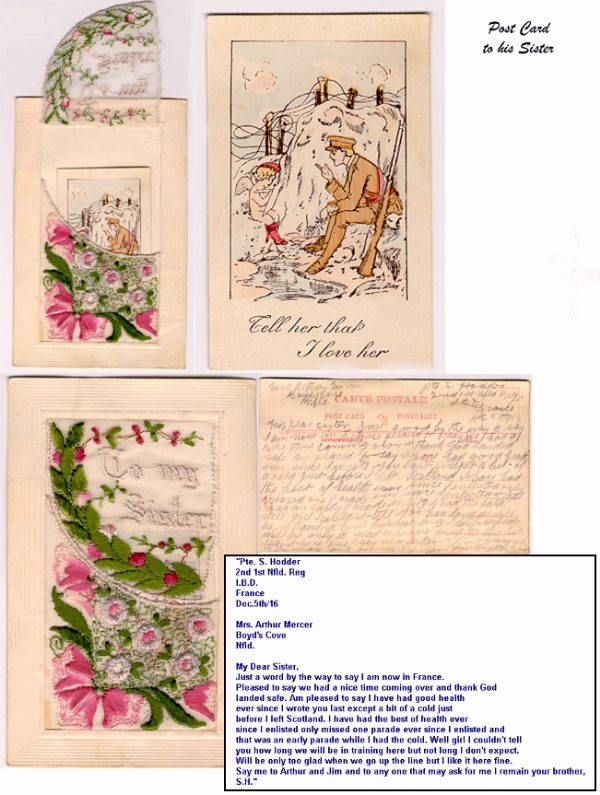 Post Card
to his Sister
Tell her that
I love her
To my
Sister
Mrs Arthur
Boyd's Cove
Nfld.
CARTE POSTALE
POST CARD
POSTKAART
Pte S. Hodder
2nd 1st Nfld Reg
I.B.D.
France
My Dear Sister Just a word by the way to say
I am now in France pleased to say we had a
nice time coming over and thank God landed
"Pte. S. Hodder
2nd 1st Nfld. Reg
I.B.D.
France
Dec.5th/16
Mrs. Arthur Mercer
Boyd's Cove
Nfld.
My Dear Sister,
Just a word by the way to say I am now in France.
Pleased to say we had a nice time coming over and thank God
landed safe. Am pleased to say I have had good health
ever since I wrote you last except a bit of a cold just
before I left Scotland. I have had the best of health ever
since I enlisted only missed one parade ever since I enlisted and
that was an early parade while I had the cold. Well girl I couldn't tell
you how long we will be in training here but not long I don't expect.
Will be only too glad when we go up the line but I like it here fine.
Say me to Arthur and Jim and to any one that may ask for me I remain your brother,
S.H."